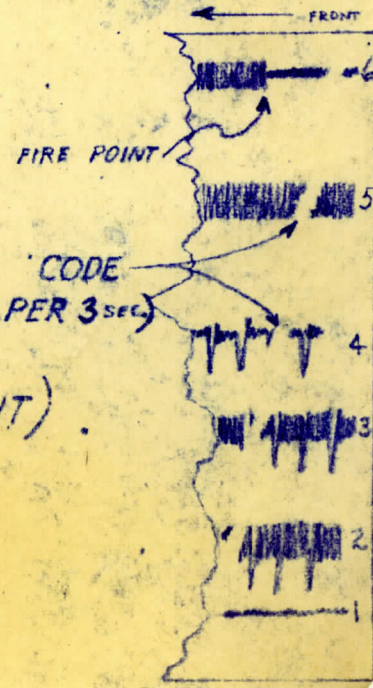 FRONT
6
FIRE POINT
5
CODE
PER 3 sec)
4
3
2
1